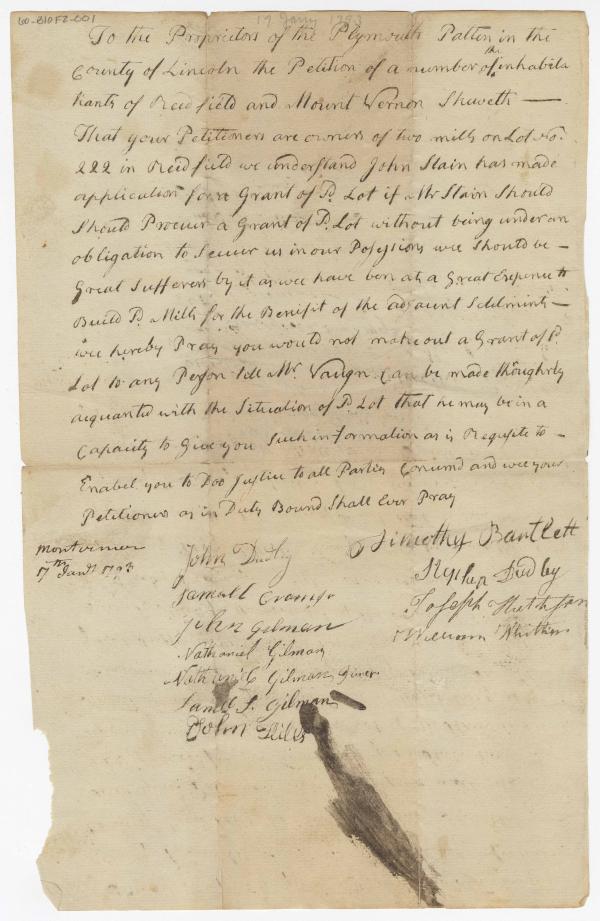 60-B10F2-001
17 Jany 1793
To the Proprietors of the Plymouth Patten in the
County of Lincoln the Petition of a number of the inhabita
tants of Readfield and Mount Vernon Sheweth —
That your Petitioners are owners of two mills on Lot No.
222 in Readfield we understand John Stain has made
application for a Grant of Sd. Lot if Mr Stain Should
Should Procuer a Grant of Sd. Lot without being under an
obligation to Secuer us in our Posessions wee Should be —
Great Sufferers by it as wee have ben at a Great Expence to
Build Sd. Mills for the Benifit of the adjacent Setelments —
wee hereby Pray you would not make out a Grant of Sd.
Lot to any Person tell Mr. Vaugn can be made thoughrly
aquanted with the Situation of Sd. Lot that he may be in a
Capacity to Give you Such information as is Requsite to —
Enabel you to Doo Justice to all Parties Conscrnd and wee your
Petitioners as in Duty Bound Shall Ever Pray
17th Jany 1793
John Dudly
Samuell
John Gilman
Nathaniel Gilman
Nathaniel Gilman Juner
Samll S. Gilman
John
Timothy Bartlett
Dudley
Joseph
William